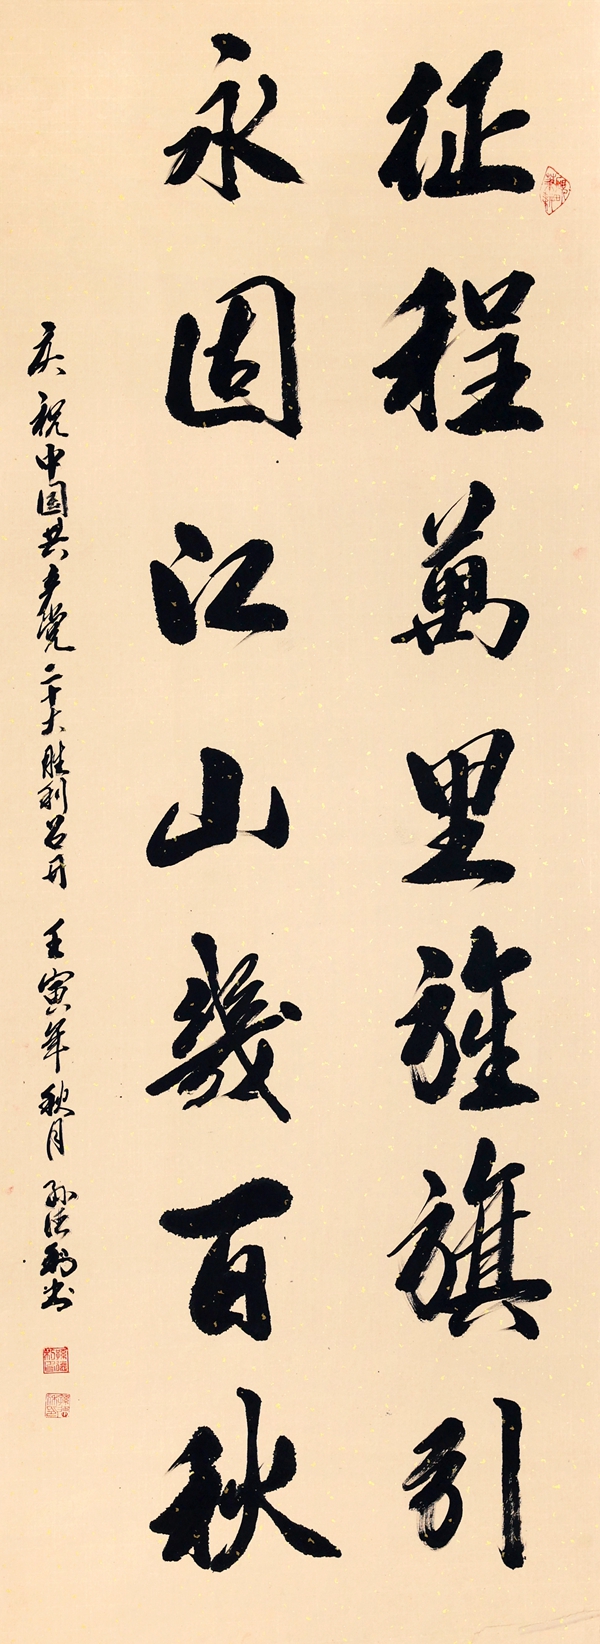 征程萬里旌旗引
永固江山幾百秋
庆祝中国共产党二十大胜利召开 壬寅年秋月 孙